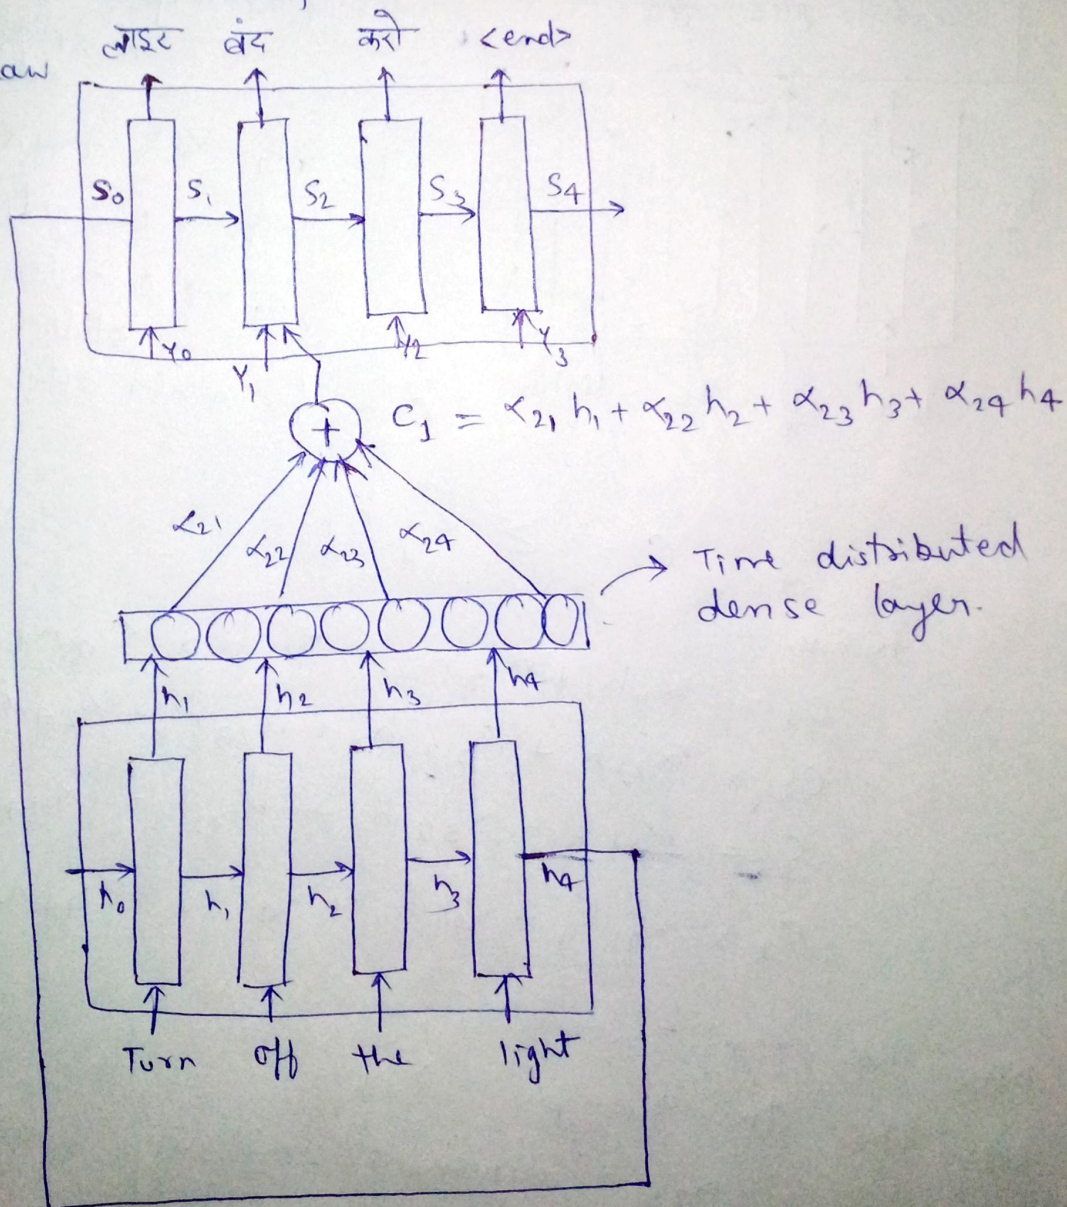 लाइट बंद करो <end>
S₀ S₁ S₂ S₃ S₄
Y₀ Y₁ Y₂ Y₃
+ C₁ = α₂₁ h₁ + α₂₂ h₂ + α₂₃ h₃ + α₂₄ h₄
α₂₁ α₂₂ α₂₃ α₂₄
Time distributed
dense layer.
h₁ h₂ h₃ h₄
h₀ h₁ h₂ h₃ h₄
Turn off the light